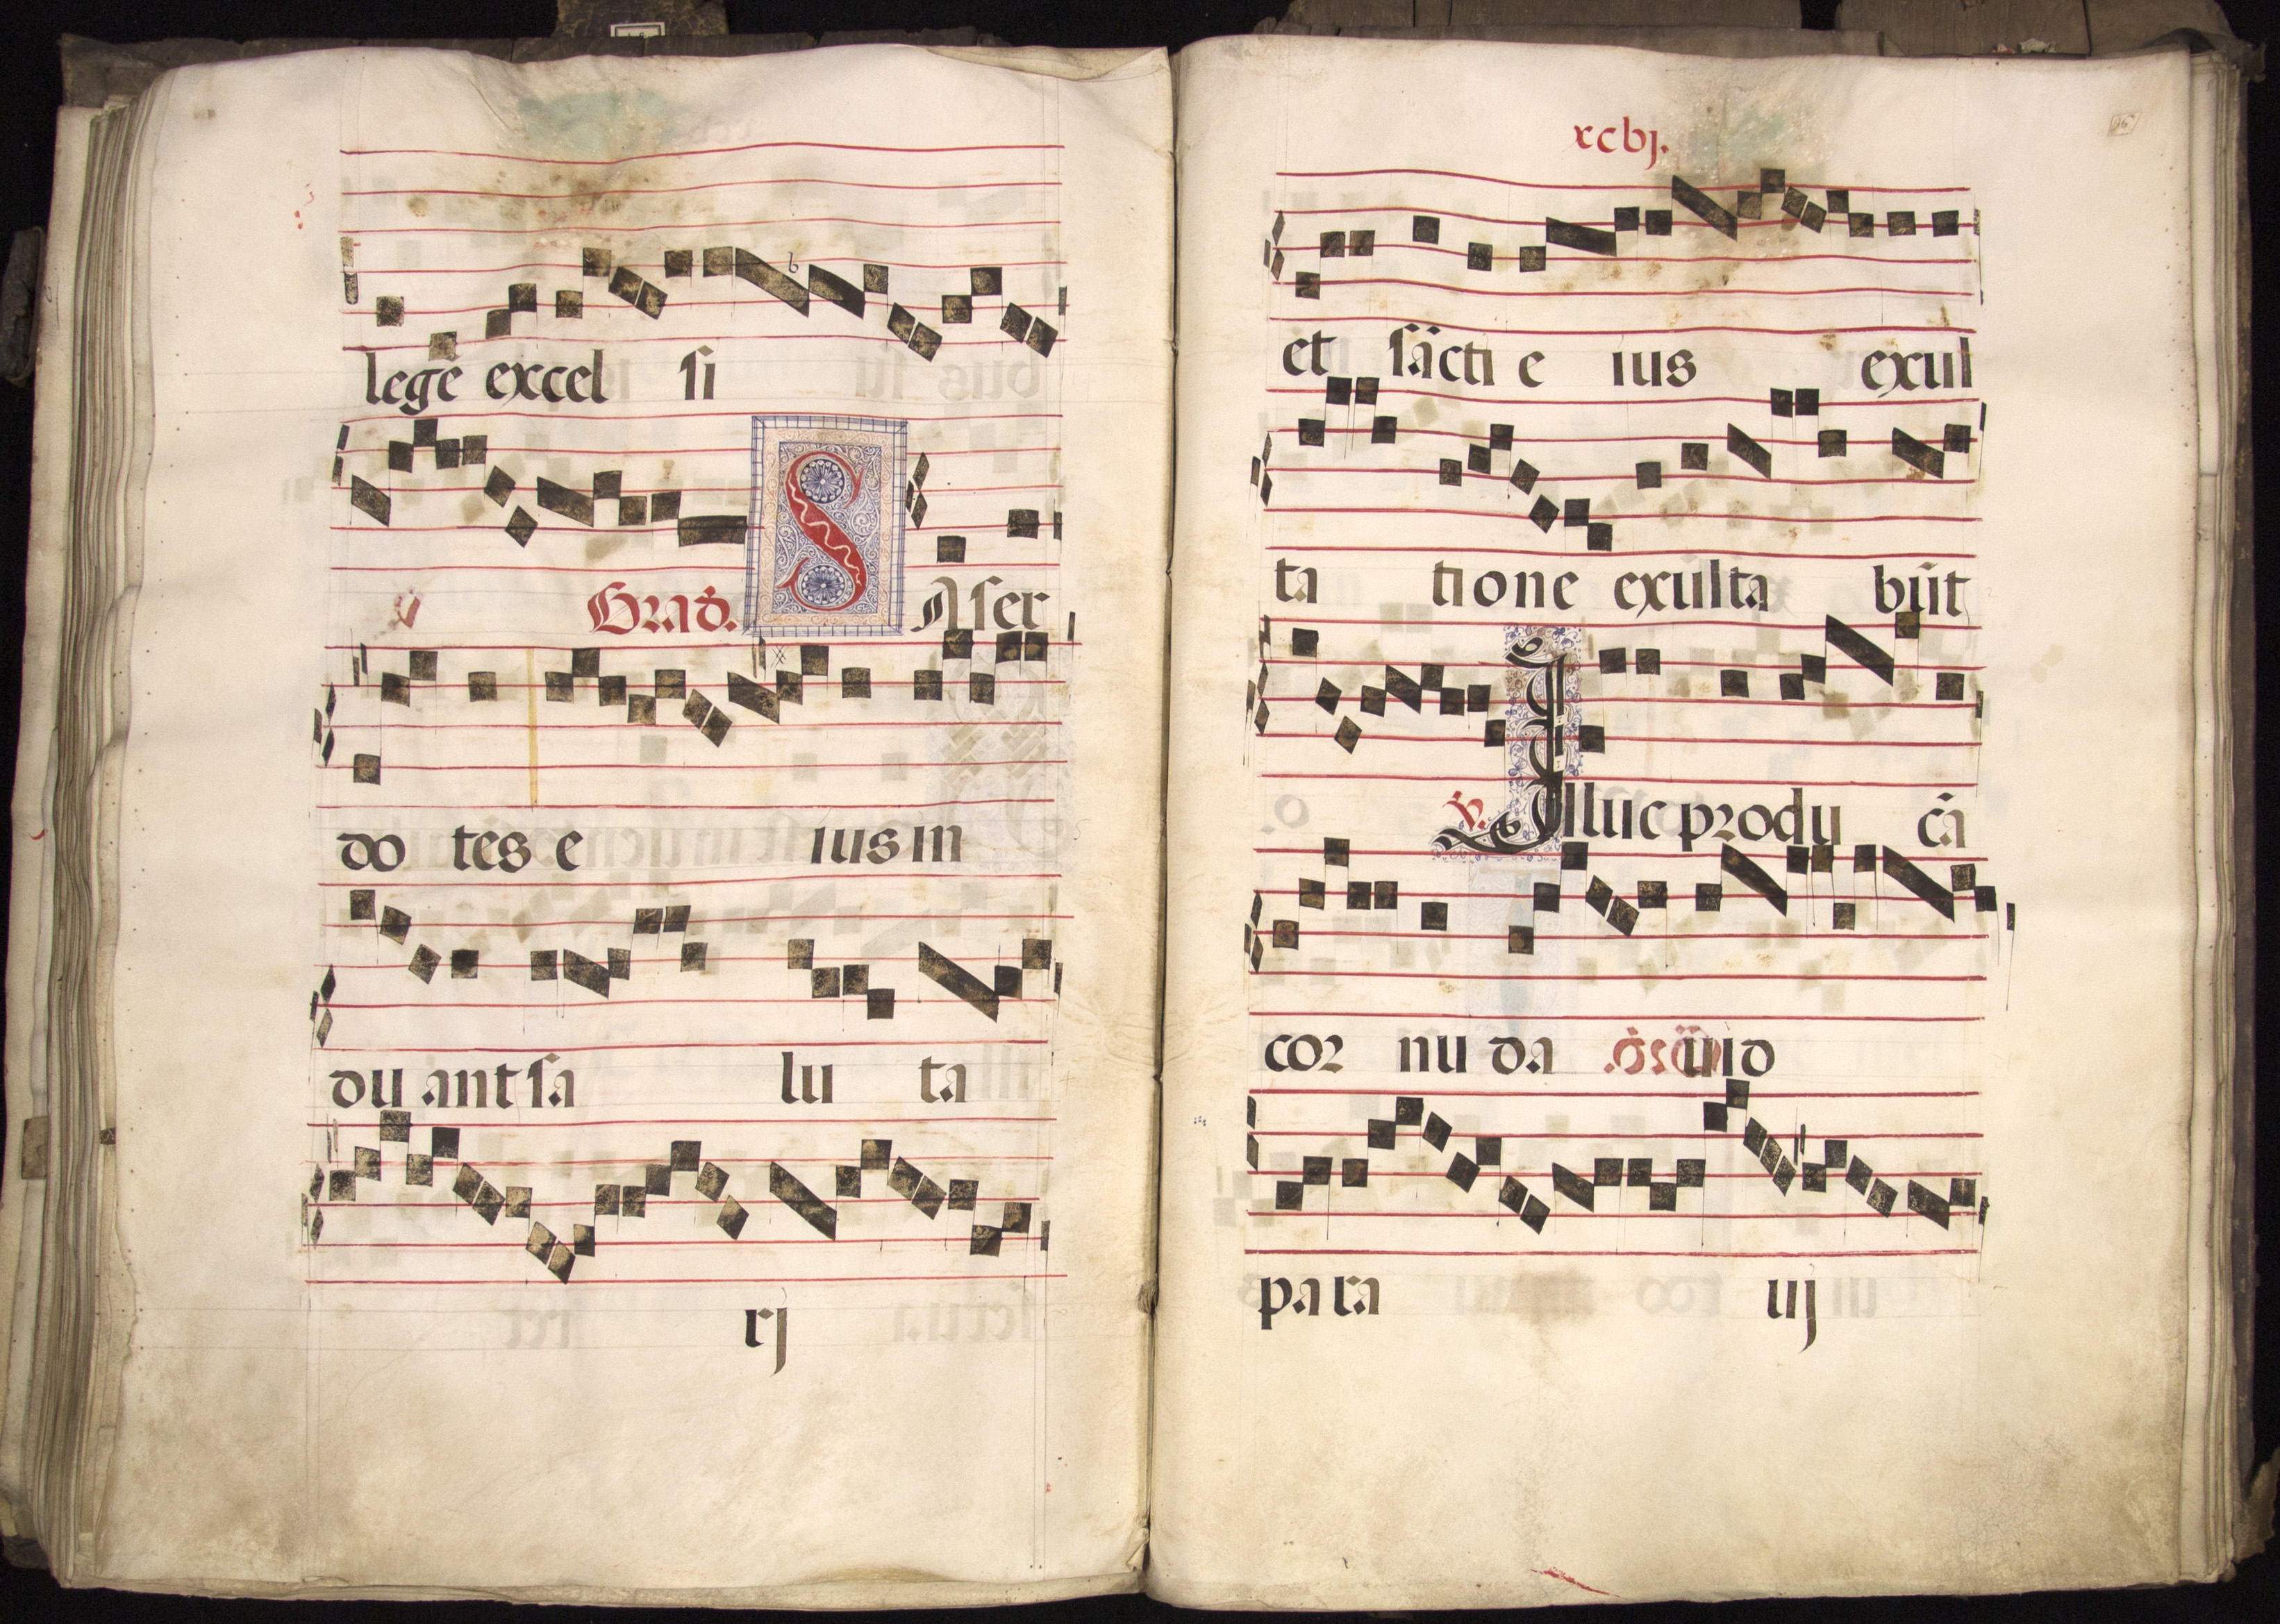 legē excel si
v Grad. SAcer
do tes e ius in
du ant sa lu ta
rj
xcvj.
96
et sācti e ius exul
ta tione exulta būt
℣. Illuc produ cā
cor nu da uid
para uj